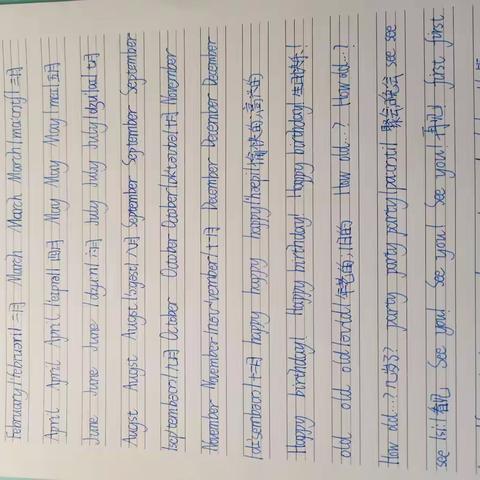 February/februəri/二月 March March March/mɑːtʃ/三月
April April April /eiprəl/ 四月 May May May/mei/五月
June June June /dʒuːn/ 六月 July July July/dʒulai/七月
Augst Augst Augst/ɔgəst/ 八月 September September September
/septembər/九月 October October October/oktəʊbə/十月 November
November November/nəʊvembər/十一月 December December December
/disembər/十二月 happy happy happy/hæpi/愉快的;高兴的
Happy birthday! Happy birthday! Happy birthday!生日快乐!
old old old/əʊld/年老的;旧的 How old…? How old…?
How old…?几岁了? party party party/pɑːrti/ 聚会;晚会 see see
see /siː/看见 See you! See you! See you!再见! first first